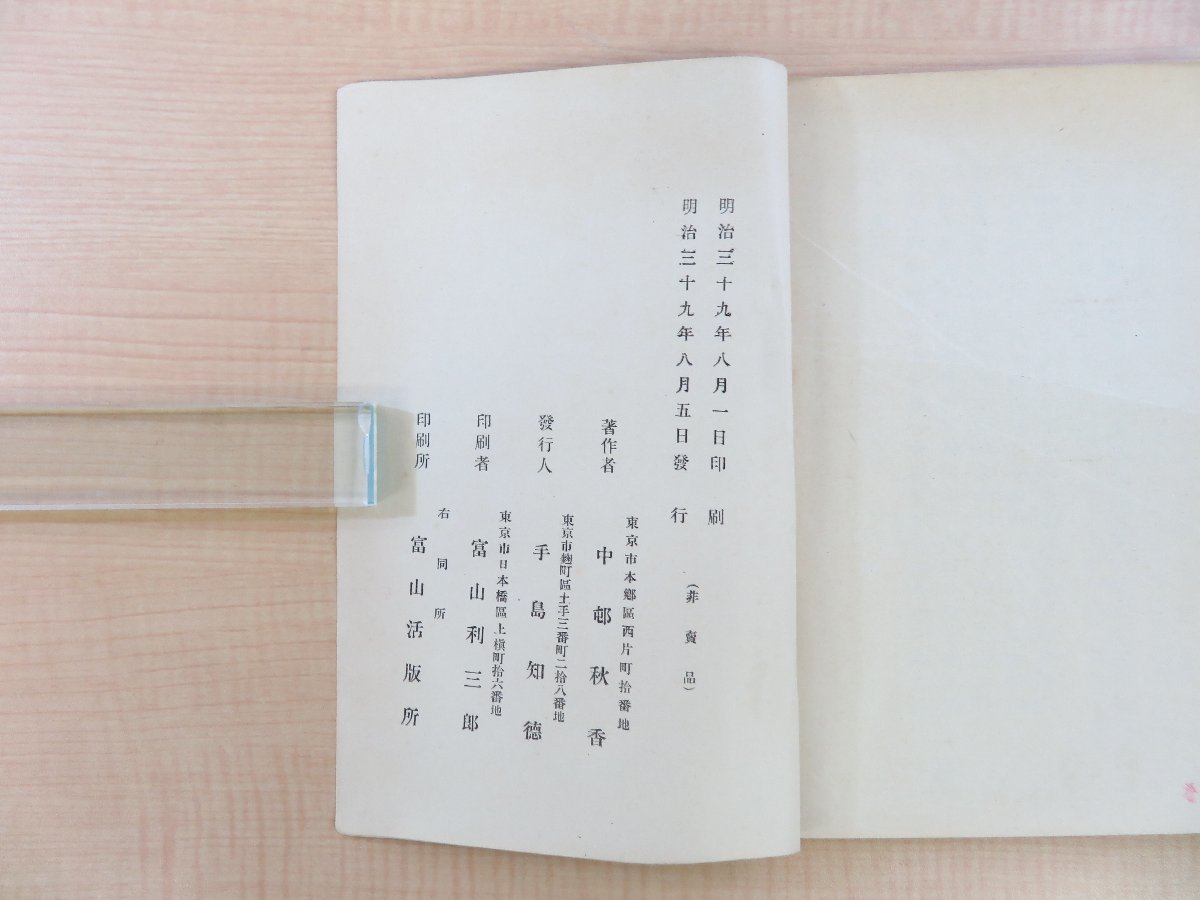 明治三十九年八月一日印刷
明治三十九年八月五日發行
（非賣品）
東京市本鄕區西片町拾番地
著作者 中邨秋香
東京市麴町區土手三番町二拾八番地
發行人 手島知德
東京市日本橋區上槇町拾六番地
印刷者 富山利三郎
右同所
印刷所 富山活版所